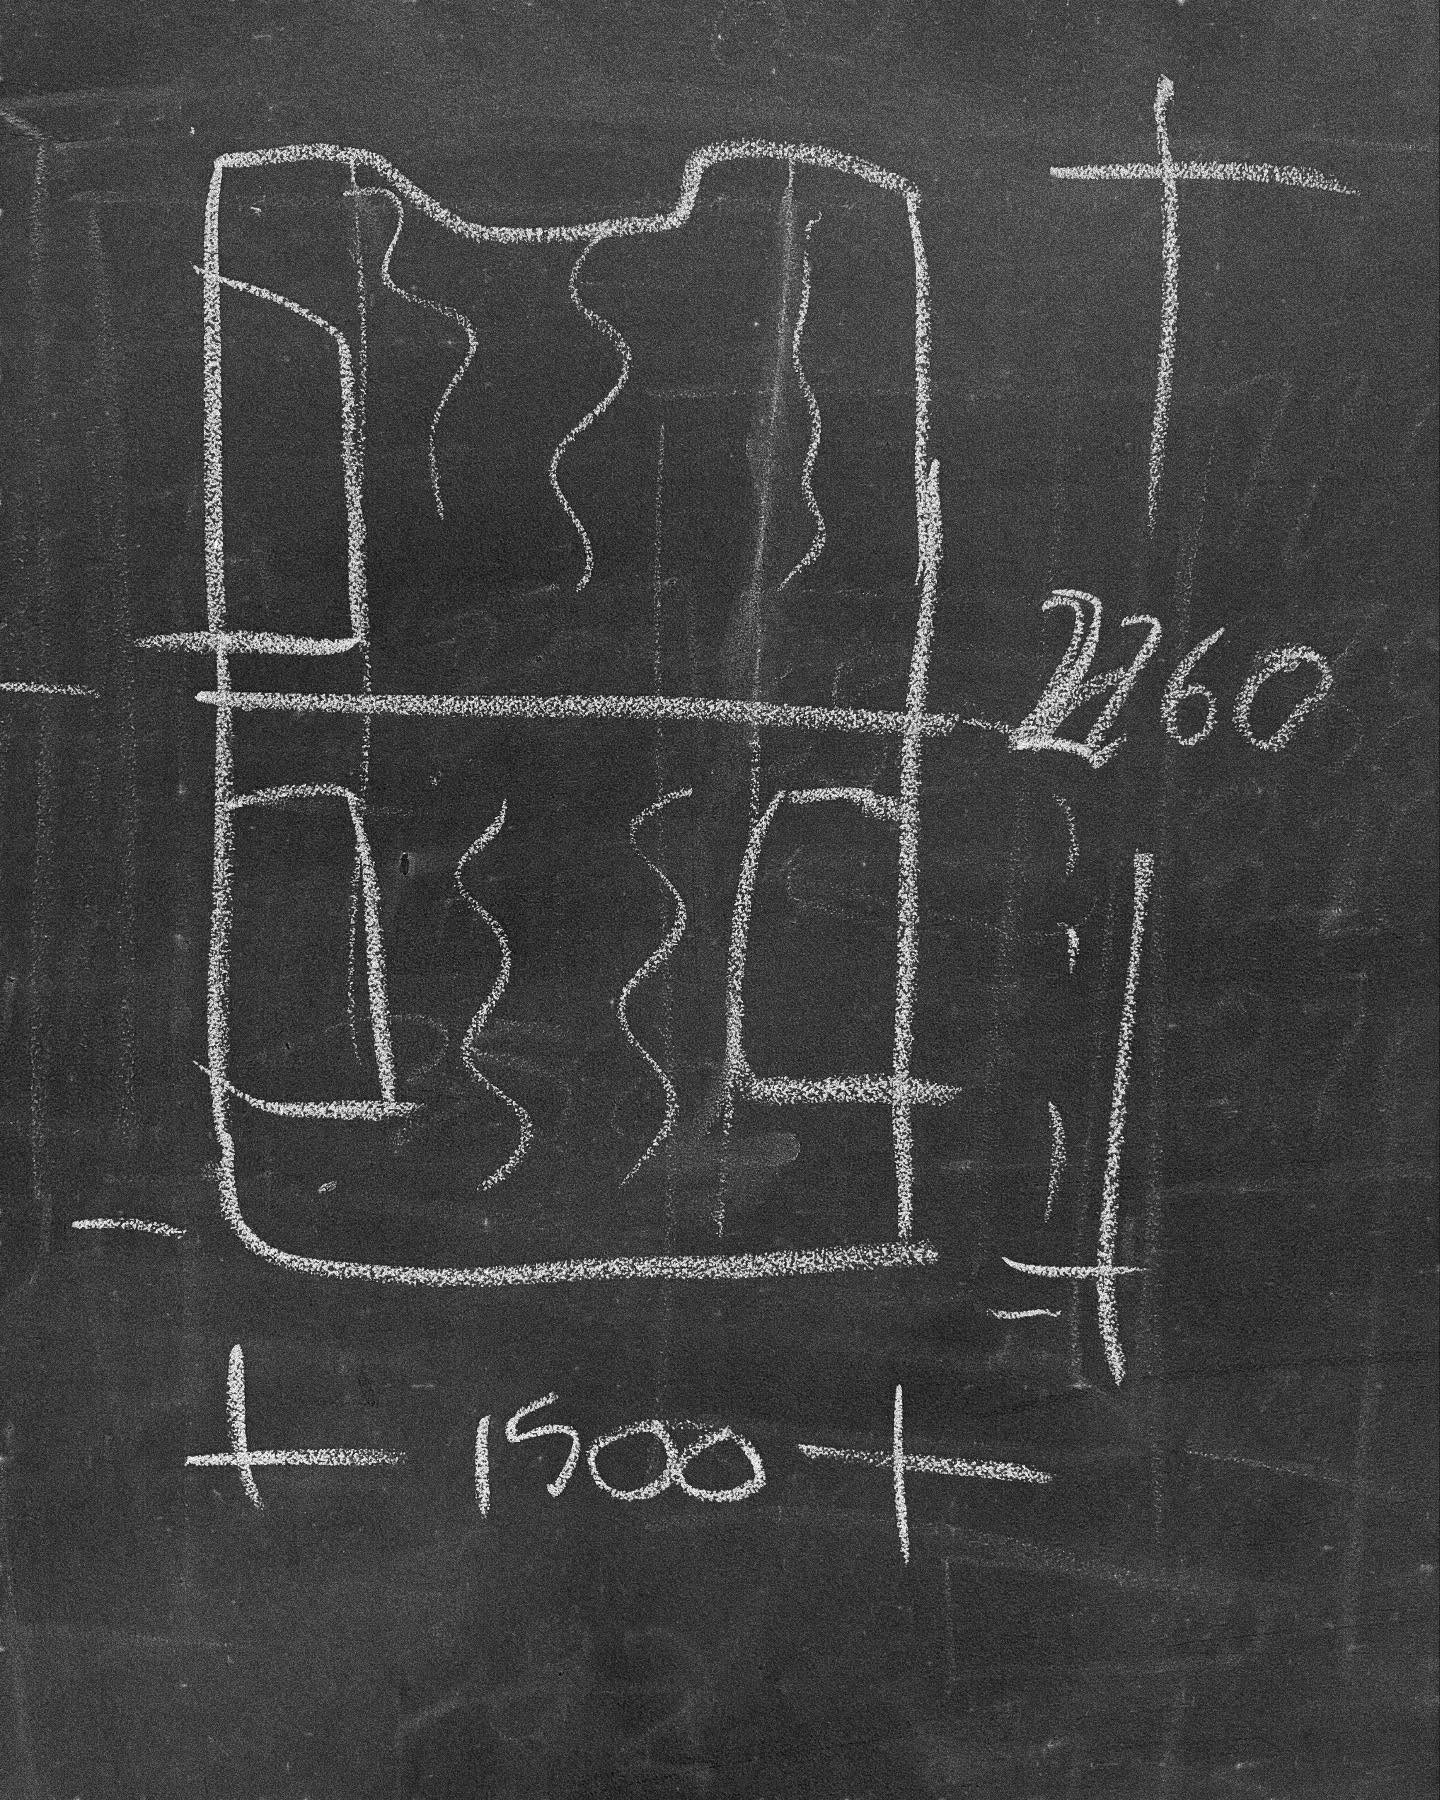 2260
1500